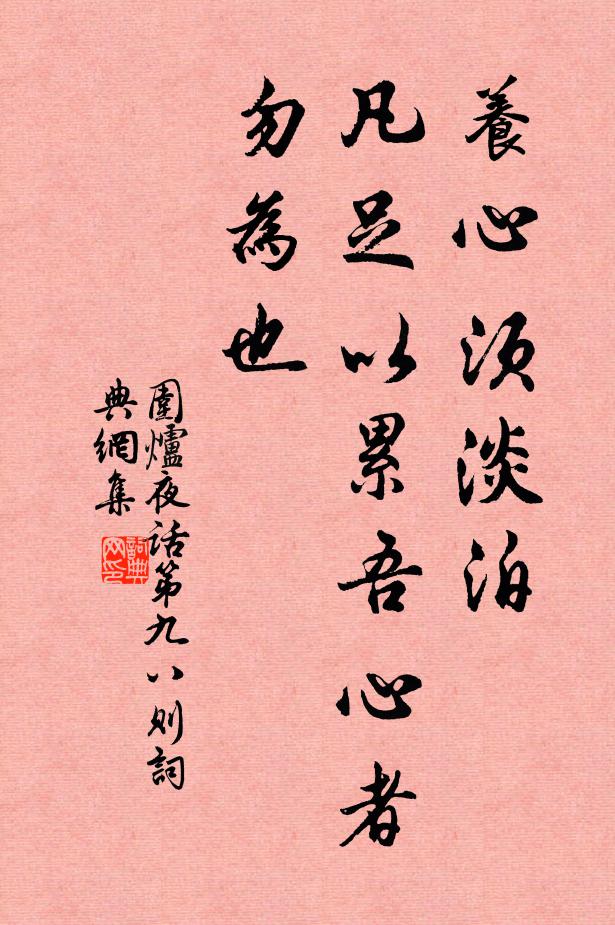 養心須淡泊
凡足以累吾心者
勿為也
圍爐夜話第九八則詞
典網集
詞典
网印